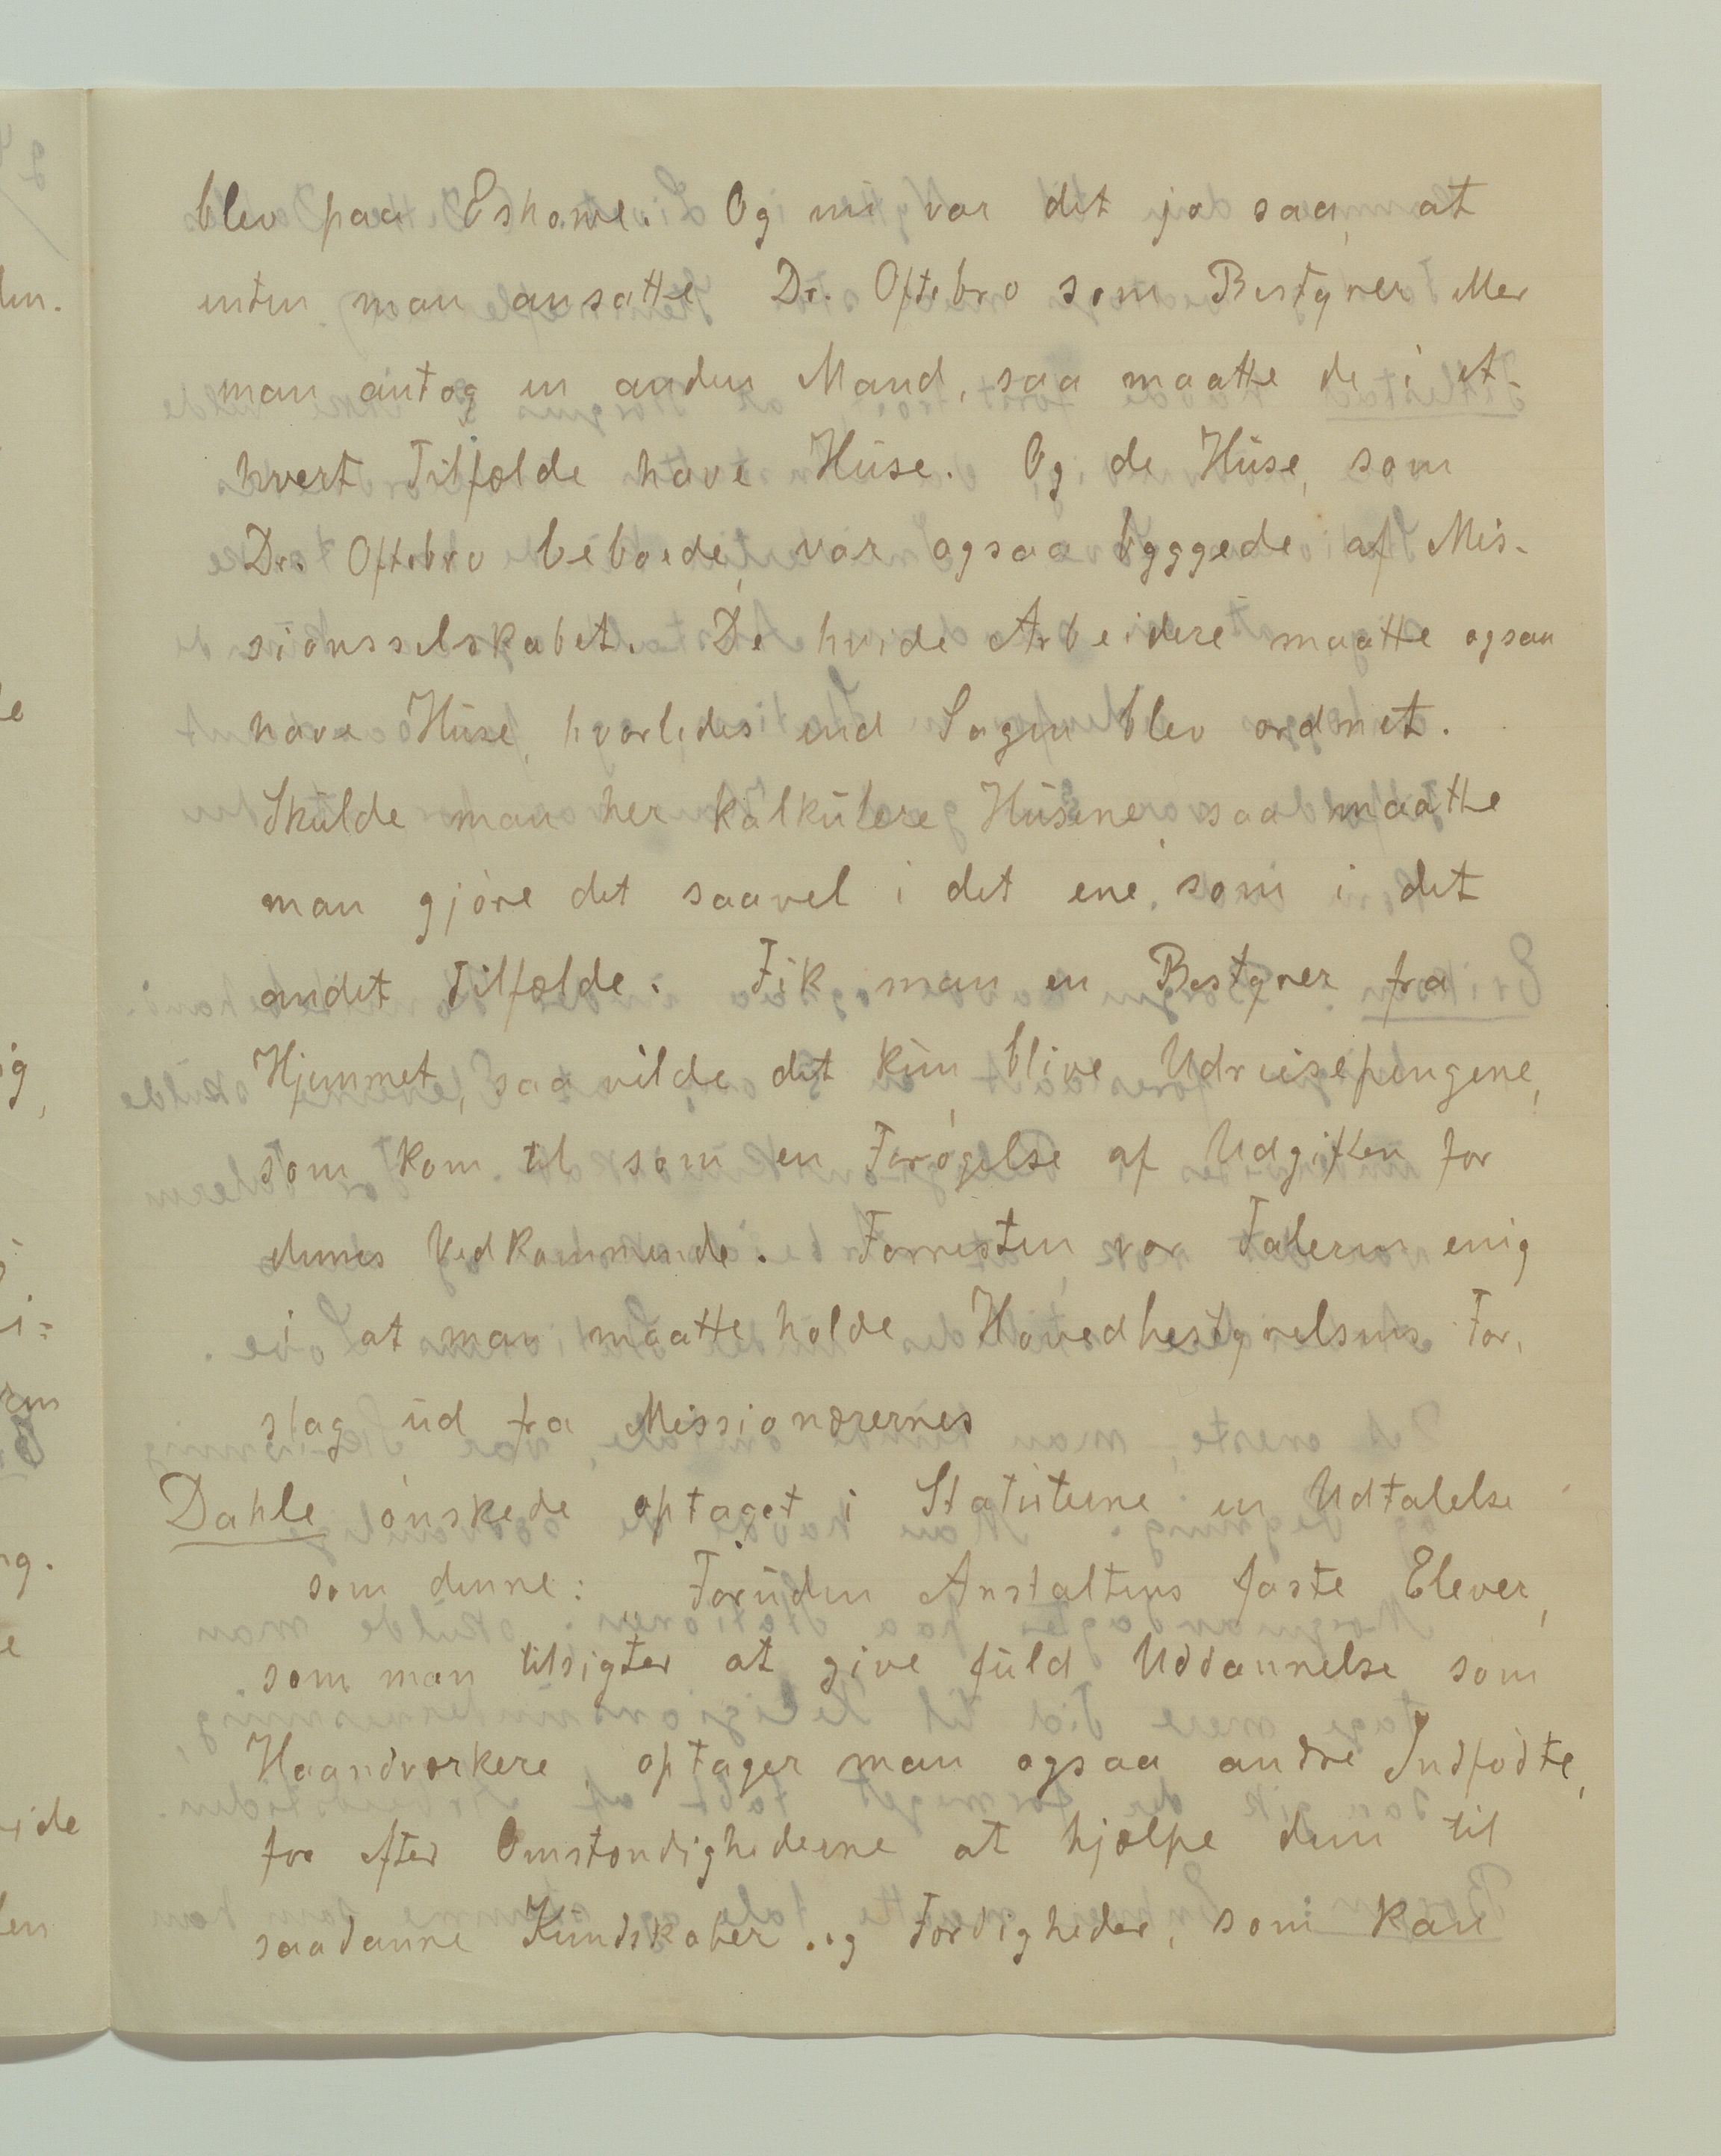 blev paa Eshowe. Og nu var det jo saa, at
enten man ansatte Dr. Oftebro som Bestyrer eller
man antog en anden Mand, saa maatte de i et-
hvert Tilfælde have Huse. Og de Huse, som
Dr. Oftebro beboede, var ogsaa byggede af Mis-
sionsselskabet. De hvide Arbeidere maatte ogsaa
have Huse, hvorledes end Sagen blev ordnet.
Skulde man her kalkulere Husene, saa maatte
man gjøre det saavel i det ene, som i det
andet Tilfælde. Fik man en Bestyrer fra
Hjemmet, saa vilde det kun blive Udreisepengene,
som kom til som en Forøgelse af Udgiften for
dennes Vedkommende. Forresten var Taleren enig
i at man maatte holde Hovedbestyrelsens For-
slag ud fra Missionærernes
Dahle ønskede optaget i Statuterne en Udtalelse
som denne: „Foruden Anstaltens faste Elever,
som man tilsigter at give fuld Uddannelse som
Haandværkere, optager man ogsaa andre Indfødte,
for efter Omstændighederne at hjælpe dem til
saadanne Kundskaber og Færdigheder, som kan